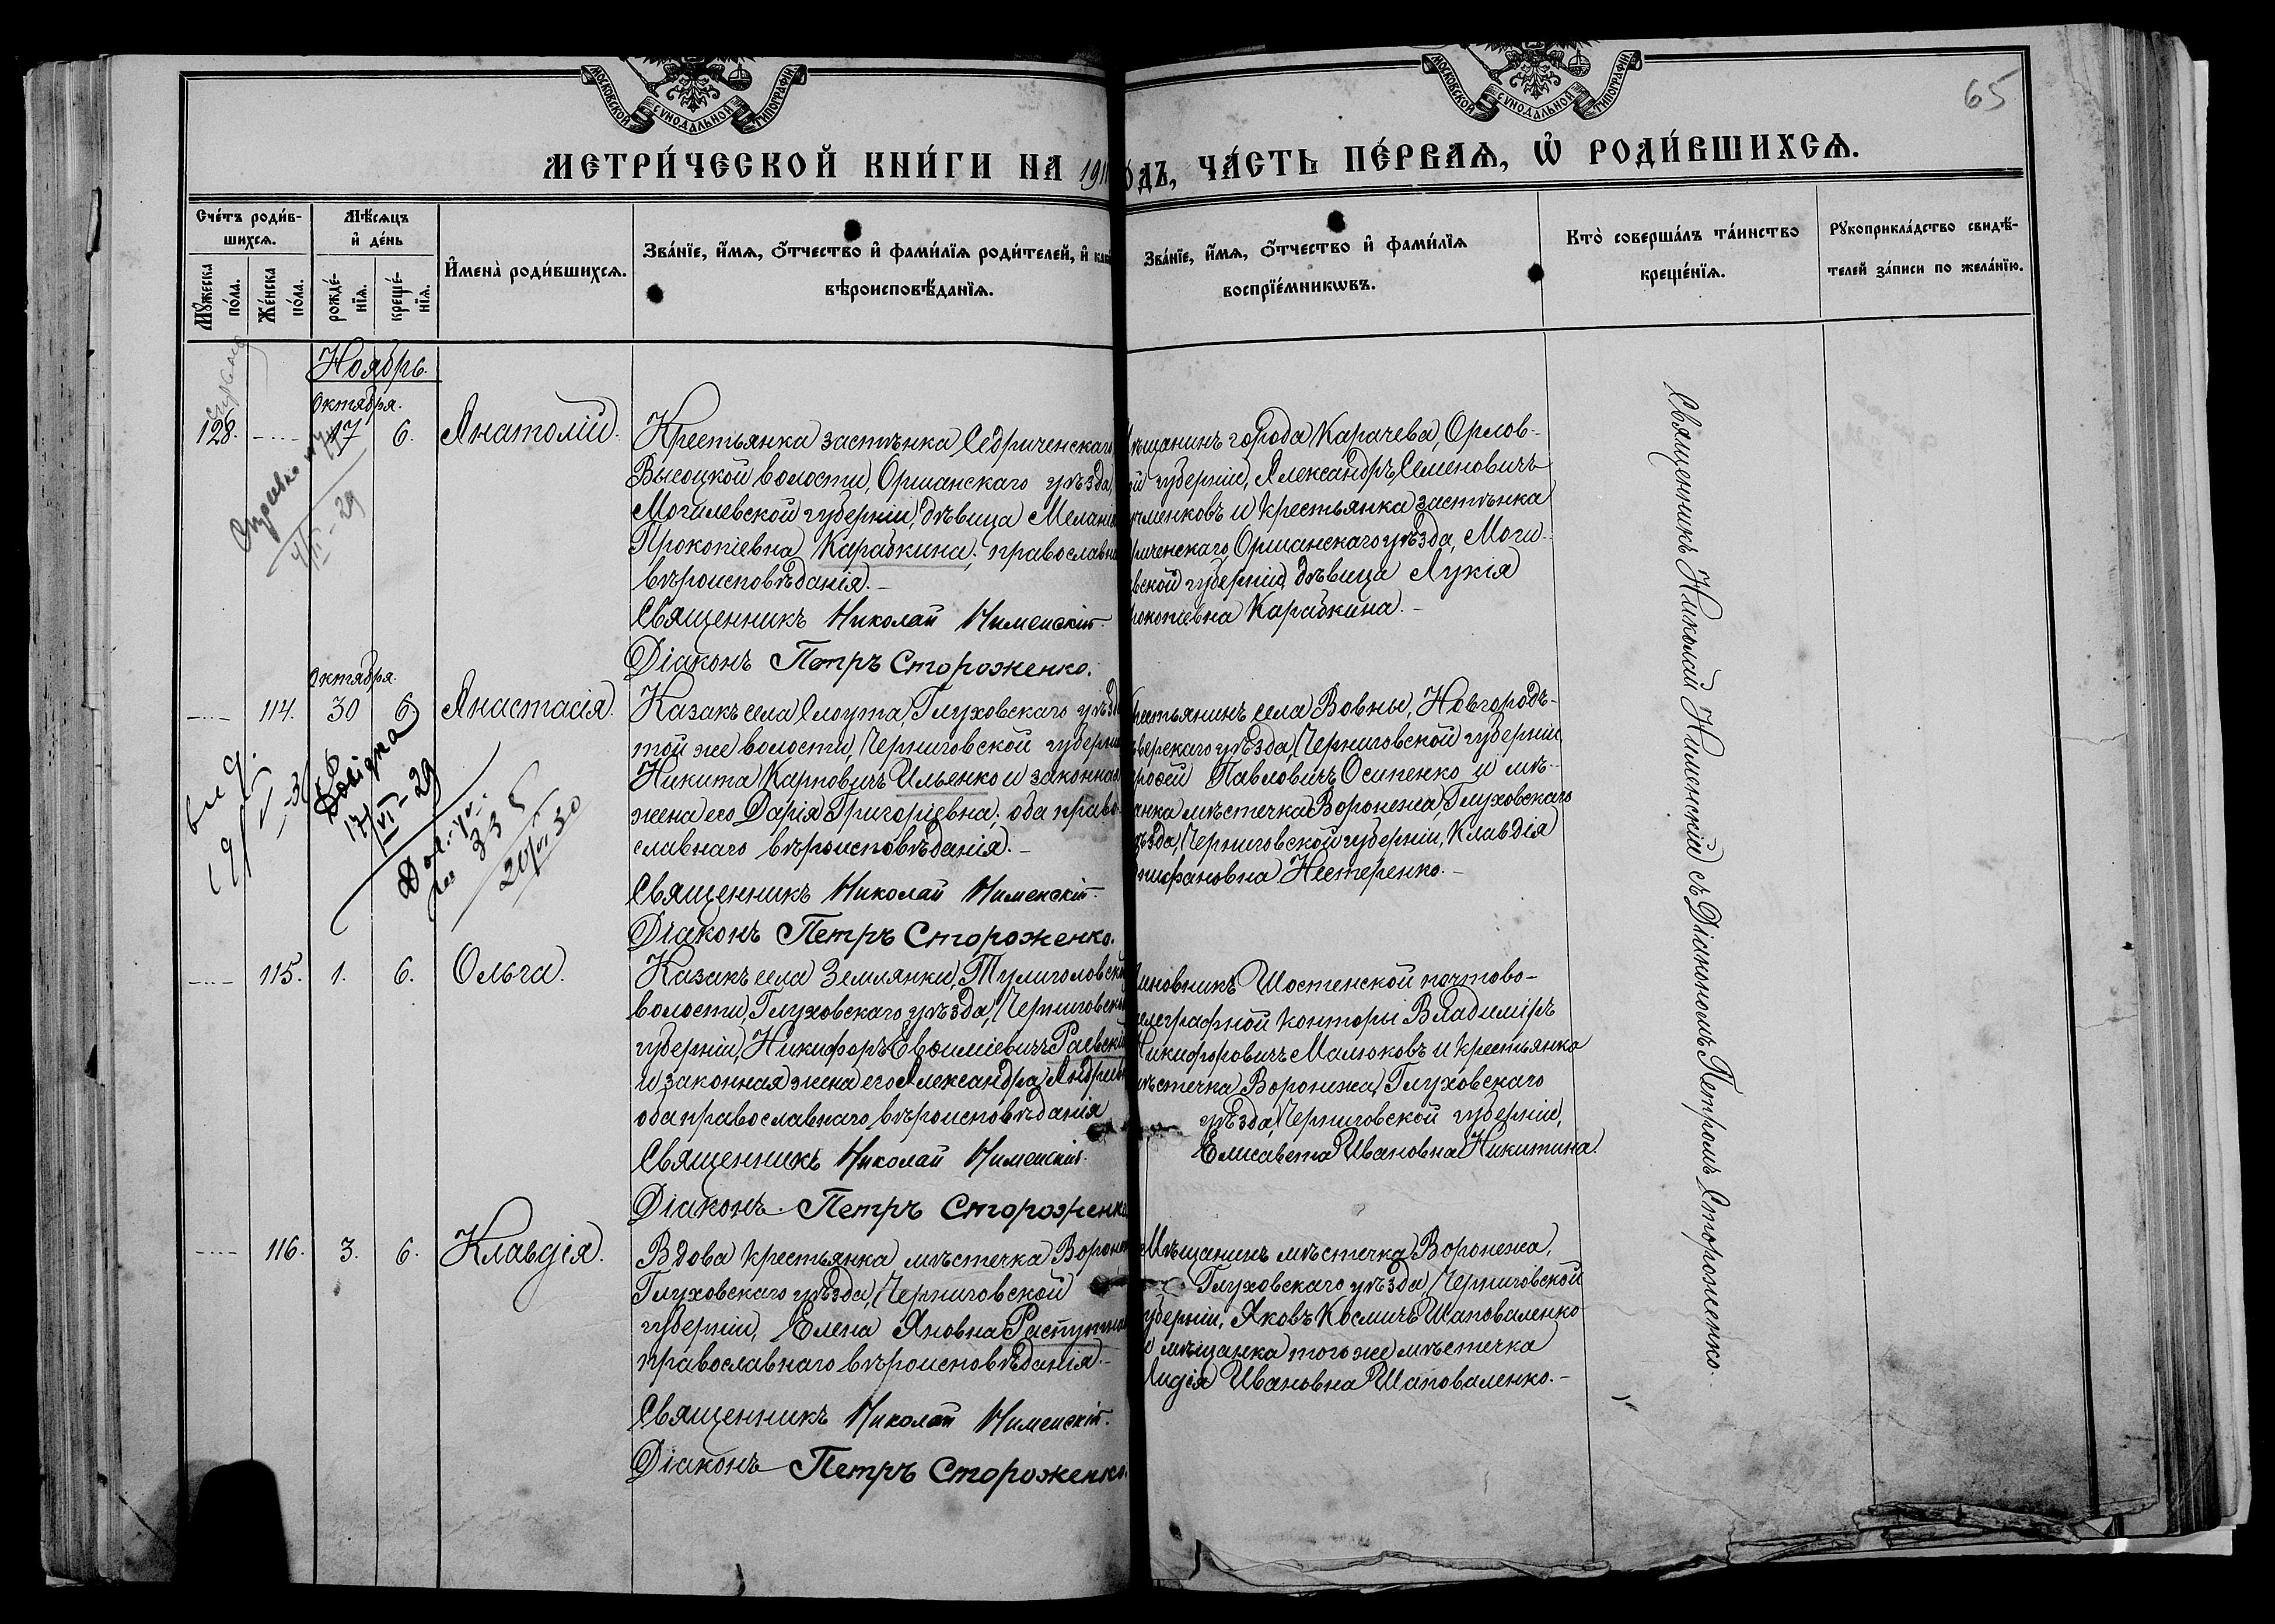 65
МОСКОВСКОЙ СѴНОДАЛЬНОЙ ТИПОГРАФІИ
МОСКОВСКОЙ СѴНОДАЛЬНОЙ ТИПОГРАФІИ
МЕТРИ́ЧЕСКОЙ КНИ́ГИ НА 191
ОДЪ, ЧА́СТЬ ПЕ́РВАѦ, Ѡ РОДИ́ВШИХСѦ.
Сче́тъ роди́в-
шихсѧ.
Мꙋ́жеска по́ла.
Же́нска по́ла.
Мѣ́сѧцъ
и҆ де́нь
рожде́-
нїѧ.
креще́-
нїѧ.
И҆мена̀ роди́вшихсѧ.
Зва́нїе, и҆́мѧ, о҆́тчество и҆ фами́лїѧ роди́телей, и҆
вѣроисповѣ́данїѧ.
Зва́нїе, и҆́мѧ, о҆́тчество и҆ фами́лїѧ
воспрїе́мникѡвъ.
Кто̀ соверша́лъ та́инство
креще́нїѧ.
Рꙋкоприкла́дство свидѣ́-
телей за́писи по жела́нїю.
Ноябрь.
Октября.
128. 17 6. Анатолій.
Крестьянка застѣнка Седриченскаго
Высоцкой волости, Оршанскаго уѣзда,
Могилевской губерніи, дѣвица Меланія
Прокопіевна Карабкина, православна
вѣроисповѣданія.–
Священникъ Николай Нименскій.
Діаконъ Петръ Стороженко.
ѣщанинъ города Карачева, Орлов-
ой губерніи, Александръ Семеновичъ
менковъ и крестьянка застѣнка
риченскаго, Оршанскаго уѣзда, Моги-
вской губерніи, дѣвица Лукія
рокопіевна Карабкина.–
VI-29
Октября.
114. 30 6 Анастасія.
Казакъ села Слоута, Глуховскаго уѣзда
той же волости, Черниговской губерніи
Никита Карповичъ Ильенко и законная
жена его Дарія Григоріевна, оба право-
славнаго вѣроисповѣданія.–
Священникъ Николай Нименскій.
Діаконъ Петръ Стороженко.
рестьянинъ села Вовны, Новгородъ-
верскаго уѣзда, Черниговской губерніи,
рофей Павловичъ Осипенко и мѣ-
анка мѣстечка Воронежа, Глуховскаго
ѣзда, Черниговской губерніи, Клавдія
пифановна Нестеренко.–
вид.
17/VI-29
335
20/VI 30
115. 1. 6. Ольга.
Казакъ села Землянки, Тулиголовской
волости, Глуховскаго уѣзда, Черниговской
губерніи, Никифоръ Евѳиміевичъ Раевскій
и законная жена его Александра Андреев
оба православнаго вѣроисповѣданія
Священникъ Николай Нименскій.
Діаконъ Петръ Стороженко
иновникъ Шостенской почтово-
елеграфной конторы Владиміръ
Никифоровичъ Малюковъ и крестьянка
мѣстечка Воронежа, Глуховскаго
уѣзда, Черниговской губерніи,
Елисавета Ивановна Никитина.
116. 3. 6. Клавдія.
Вдова крестьянка мѣстечка Вороне
Глуховскаго уѣзда, Черниговской
губерніи, Елена Яновна
православнаго вѣроисповѣданія.–
Священникъ Николай Нименскій.
Діаконъ Петръ Стороженко.
Мѣщанинъ мѣстечка Воронежа,
Глуховскаго уѣзда, Черниговской
губерніи, Яковъ Космичъ Шаповаленко
и мѣщанка того же мѣстечка
Лидія Ивановна Шаповаленко.–
Священникъ Николай Нименскій съ Діакономъ Петромъ Стороженко.